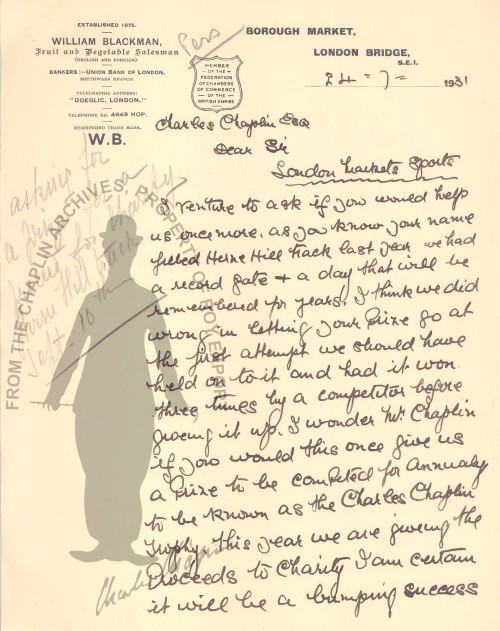 ESTABLISHED 1876.
WILLIAM BLACKMAN,
Fruit and Vegetable Salesman
(ENGLISH AND FOREIGN).
BANKERS:—UNION BANK OF LONDON.
SOUTHWARK BRANCH.
TELEGRAPHIC ADDRESS:
"DOEGLIC, LONDON."
TELEPHONE NO: 4849 HOP.
REGISTERED TRADE MARK.
W.B.
Pers
MEMBER
OF THE
FEDERATION
OF CHAMBERS
OF COMMERCE
OF THE
BRITISH EMPIRE
BOROUGH MARKET,
LONDON BRIDGE,
S.E.1.
24 = 7 = 1931
Charles Chaplin Esq
Dear Sir
London Markets Sports
I venture to ask if you would help
us once more. as you know your name
filled Herne Hill track last year we had
a record gate & a day that will be
remembered for years. I think we did
wrong in letting your Prize go at
the first attempt we should have
held on to it and had it won
three times by a competitor before
giveing it up. I wonder Mr Chaplin
if you would this once give us
a Prize to be competed for Annualy
to be known as the Charles Chaplin
Trophy this year we are giveing the
Proceeds to Charity I am certain
it will be a bumping success
asking for
a
for Charity
Herne Hill track
Sept - 10th
FROM THE CHAPLIN ARCHIVES, PROPERTY OF ROY EXPORT